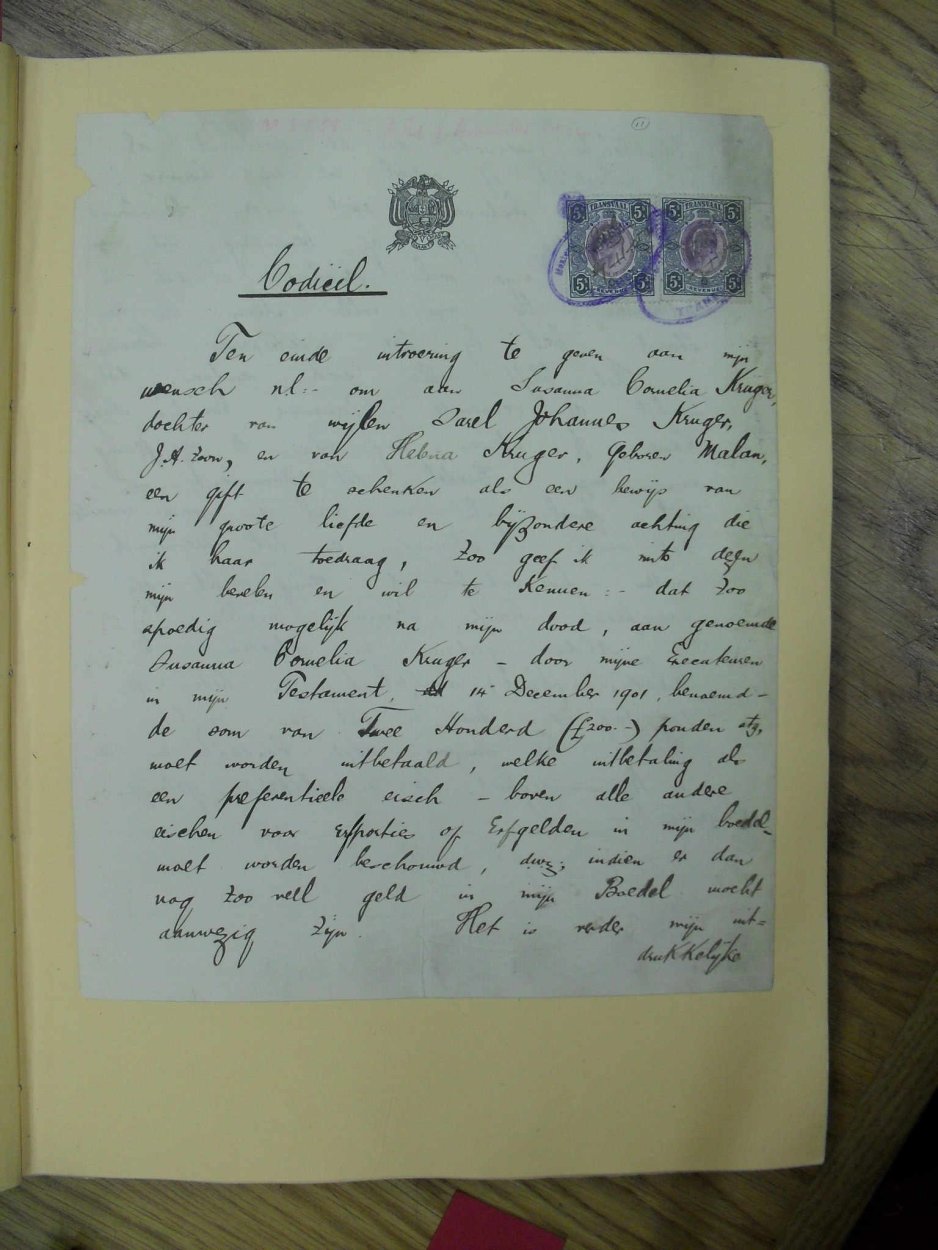 11
TRANSVAAL TRANSVAAL
5/ 5/ 5/ 5/
5/ 5/ 5/ 5/
REVENUE REVENUE
Codicil.
Ten einde uitvoering te geven aan mijn
wensch nl:- om aan Susanna Cornelia Kruger,
dochter van wijlen Sarel Johannes Kruger,
J.A. zoon, en van Helena Kruger, geboren Malan,
een gift te schenken als een bewijs van
mijn groote liefde en bijzondere achting die
ik haar toedraag, zoo geef ik mits dezen
mijn bevelen en wil te kennen:- dat zoo
spoedig mogelijk na mijn dood, aan genoemde
Susanna Cornelia Kruger - door mijne Executeuren
in mijn Testament, 14 December 1901, benoemd -
de som van Twee Honderd (£200.-) ponden stg,
moet worden uitbetaald, welke uitbetaling als
een preferentieele eisch - boven alle andere
eischen voor Erfporties of Erfgelden in mijn boedel-
moet worden beschouwd, dwz; indien er dan
nog zoo veel geld in mijn Boedel mocht
aanwezig zijn. Het is verder mijn uit=
drukkelijke